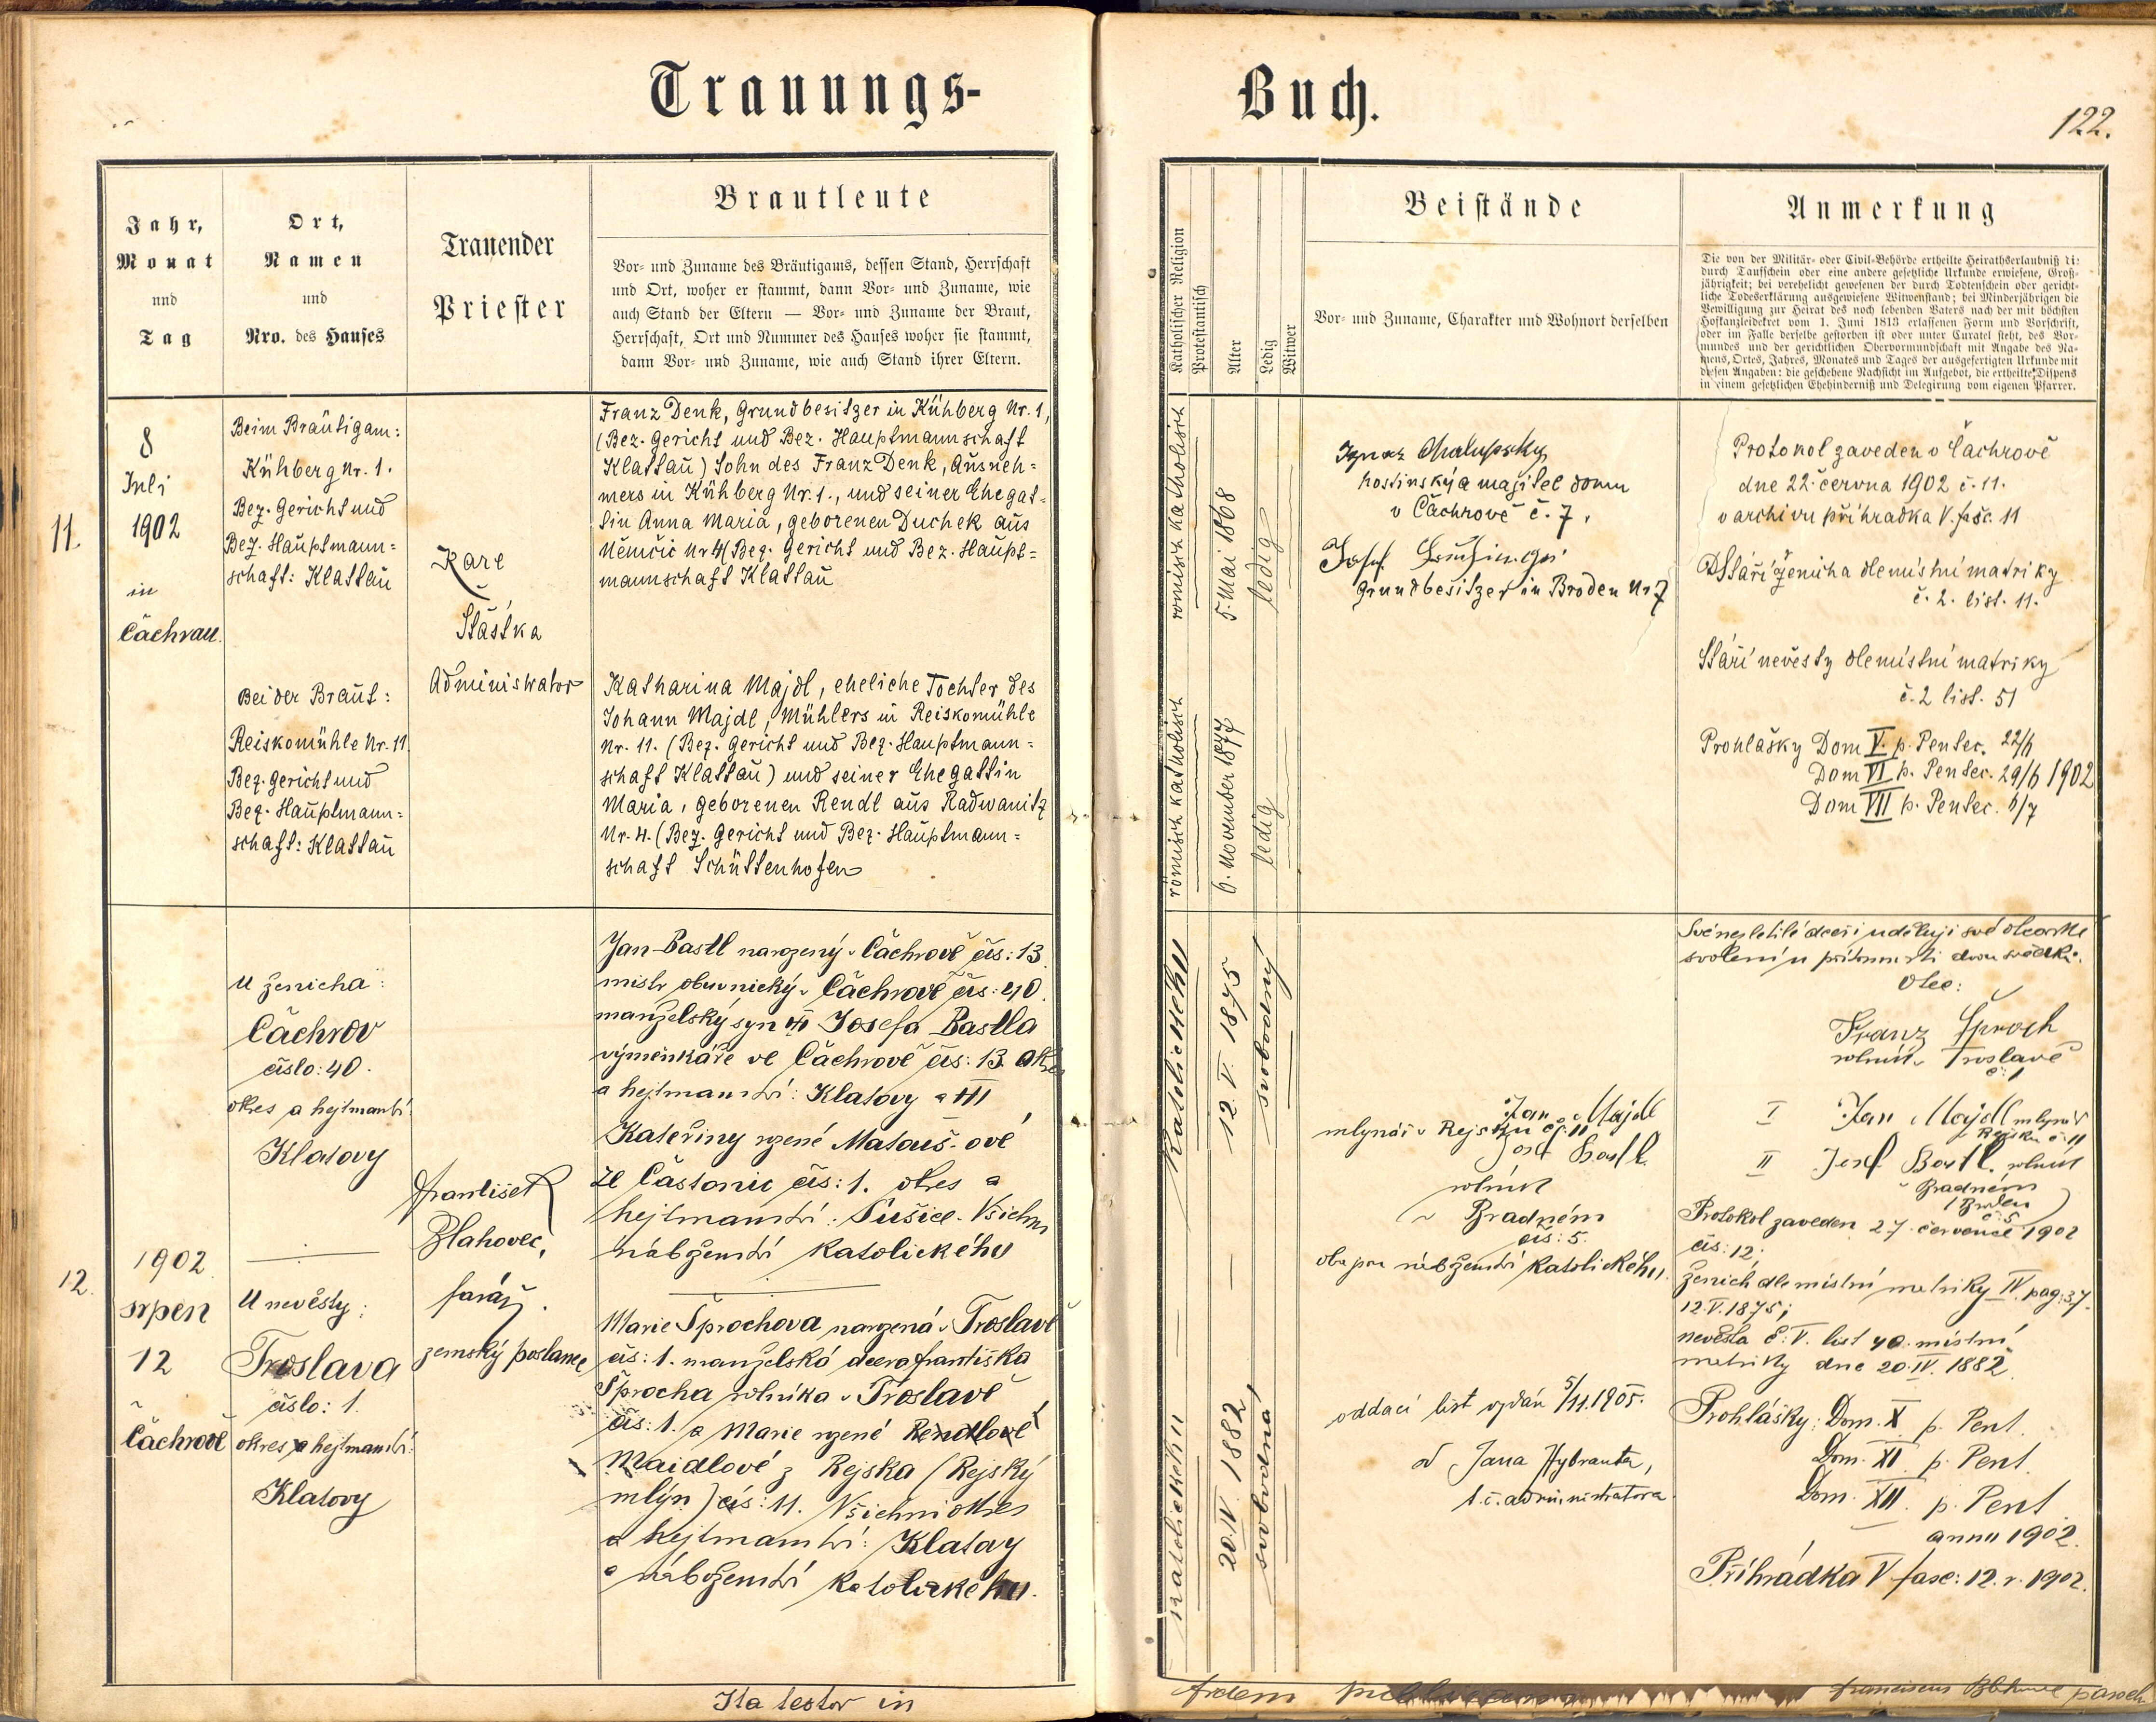 Trauungs-
Buch.
122.
Jahr,
Monat
und
Tag
Ort,
Namen
und
Nro. des Hauses
Trauender
Priester
Brautleute
Vor- und Zuname des Bräutigams, dessen Stand, Herrschaft
und Ort, woher er stammt, dann Vor- und Zuname, wie
auch Stand der Eltern — Vor- und Zuname der Braut,
Herrschaft, Ort und Nummer des Hauses woher sie stammt,
dann Vor- und Zuname, wie auch Stand ihrer Eltern.
Katholischer Religion
Protestantisch
Alter
Ledig
Witwer
Beistände
Vor- und Zuname, Charakter und Wohnort derselben
Anmerkung
Die von der Militär- oder Civil-Behörde ertheilte Heirathserlaubniß di:
durch Taufschein oder eine andere gesetzliche Urkunde erwiesene, Groß-
jährigkeit; bei verehelicht gewesenen der durch Todtenschein oder gericht-
liche Todeserklärung ausgewiesene Witwenstand; bei Minderjährigen die
Bewilligung zur Heirat des noch lebenden Vaters nach der mit höchsten
Hofkanzleidekret vom 1. Juni 1813 erlassenen Form und Vorschrift,
oder im Falle derselbe gestorben ist oder unter Curatel steht, des Vor-
mundes und der gerichtlichen Obervormundschaft mit Angabe des Na-
mens, Ortes, Jahres, Monates und Tages der ausgefertigten Urkunde mit
diesen Angaben: die geschehene Nachsicht im Aufgebot, die ertheilte Dispens
in einem gesetzlichen Ehehinderniß und Delegirung vom eigenen Pfarrer.
11.
8
Juli
1902
in
Čachrau.
Beim Bräutigam:
Kühberg Nr. 1.
Bez. Gericht und
Bez. Hauptmann=
schaft: Klattau
Bei der Braut:
Reiskomühle Nr. 11.
Bez. Gericht und
Bez. Hauptmann=
schaft: Klattau
Karl
Šťástka
Administrator
Franz Denk, Grundbesitzer in Kühberg Nr. 1,
(Bez. Gericht und Bez. Hauptmannschaft
Klattau) Sohn des Franz Denk, Ausneh=
mers in Kühberg Nr. 1., und seiner Ehegat=
tin Anna Maria, geborenen Duchek aus
Němčic Nr 4 (Bez. Gericht und Bez. Haupt=
mannschaft Klattau
Katharina Majdl, eheliche Tochter des
Johann Majdl, Mühlers in Reiskomühle
Nr. 11. (Bez. Gericht und Bez. Hauptmann=
schaft Klattau) und seiner Ehegattin
Maria, geborenen Rendl aus Radwanitz
Nr. 4. (Bez. Gericht und Bez. Hauptmann=
schaft Schüttenhofen
römisch katholisch
5. Mai 1868
ledig
römisch katholisch
6. November 1877
ledig
Ignaz Chalupsky
hostinský a majitel domu
v Čachrově č. 7.
Josef
Grundbesitzer in Broden Nr 7
Protokol zaveden v Čachrově
dne 22. června 1902 č. 11.
v archivu přihrádka V. fasc. 11
Stáří ženicha dle místní matriky
č. 2. list. 11.
Stáří nevěsty dle místní matriky
č. 2 list. 51
Prohlášky Dom V. p. Pentec. 22/6
Dom VI p. Pentec. 29/6 1902
Dom VII p. Pentec. 6/7
12.
1902
srpen
12
Čachrově
U ženicha:
Čachrov
číslo: 40.
okres a hejtmanství:
Klatovy
U nevěsty:
Troslava
číslo: 1.
okres a hejtmanství:
Klatovy
František
Blahovec,
farář.
zemský poslanec
Jan Bastl narozený v Čachrově čís: 13.
mistr obuvnický v Čachrově čís: 40.
manželský syn Josefa Bastla
výměnkáře ve Čachrově čís: 13. okres
a hejtmanství: Klatovy a
Kateřiny rzené Matauš-ové
ze Částonic čís: 1. okres a
hejtmanství: Sušice. Všichni
náboženství katolického
Marie Šprochova narzená v Troslavě
čís: 1. manželská dcera Františka
Šprocha rolníka v Troslavě
čís: 1. a Marie rzené Rendlové
Maidlové z Rejska (Rejský
mlýn) čís: 11. Všichni okres
a hejtmanství: Klatovy
a náboženství katolického.
Katolického
12. V. 1875
svobodný
Katolického
20. IV. 1882
svobodná
Jan Majdl
mlynář v Rejsku čs: 11
Josef Bastl
rolník
v Bradném
čís: 5.
oba jsou náboženství katolického.
oddací list vydán 5/11. 1905.
od Jana Hybranta,
t. č. administratora.
Své nezletilé dceři uděluji své otcovské
svolení v přítomnosti dvou svědků.
Otec:
Franz Šproch
rolník v Troslavě
č: 1
I Jan Majdl mlynář
v Rejsku č: 11
II Josef Bastl rolník
v Bradném
(Broden
č: 5
Protokol zaveden 27. července 1902
čís: 12;
ženich dle místní matriky IV. pag: 37.
12. V. 1875;
nevěsta č: V. list 40. místní
matriky dne 20. IV. 1882.
Prohlášky: Dom. X. p. Pent.
Dom. XI. p. Pent.
Dom. XII. p. Pent.
anno 1902.
Příhrádka V fasc: 12. r. 1902.
Ita testor in
fidem
Franciscus paroch